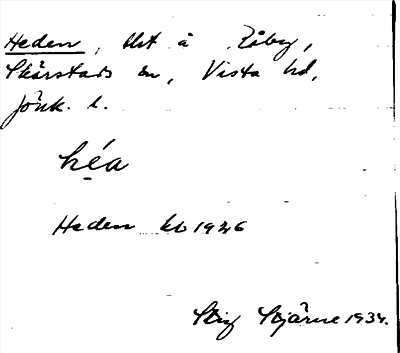 Heden, tht å Råby,
Skärstads sn, Vista hd,
Jönk. l.
héa
Heden kb 1926
Stig Stjärne 1934.